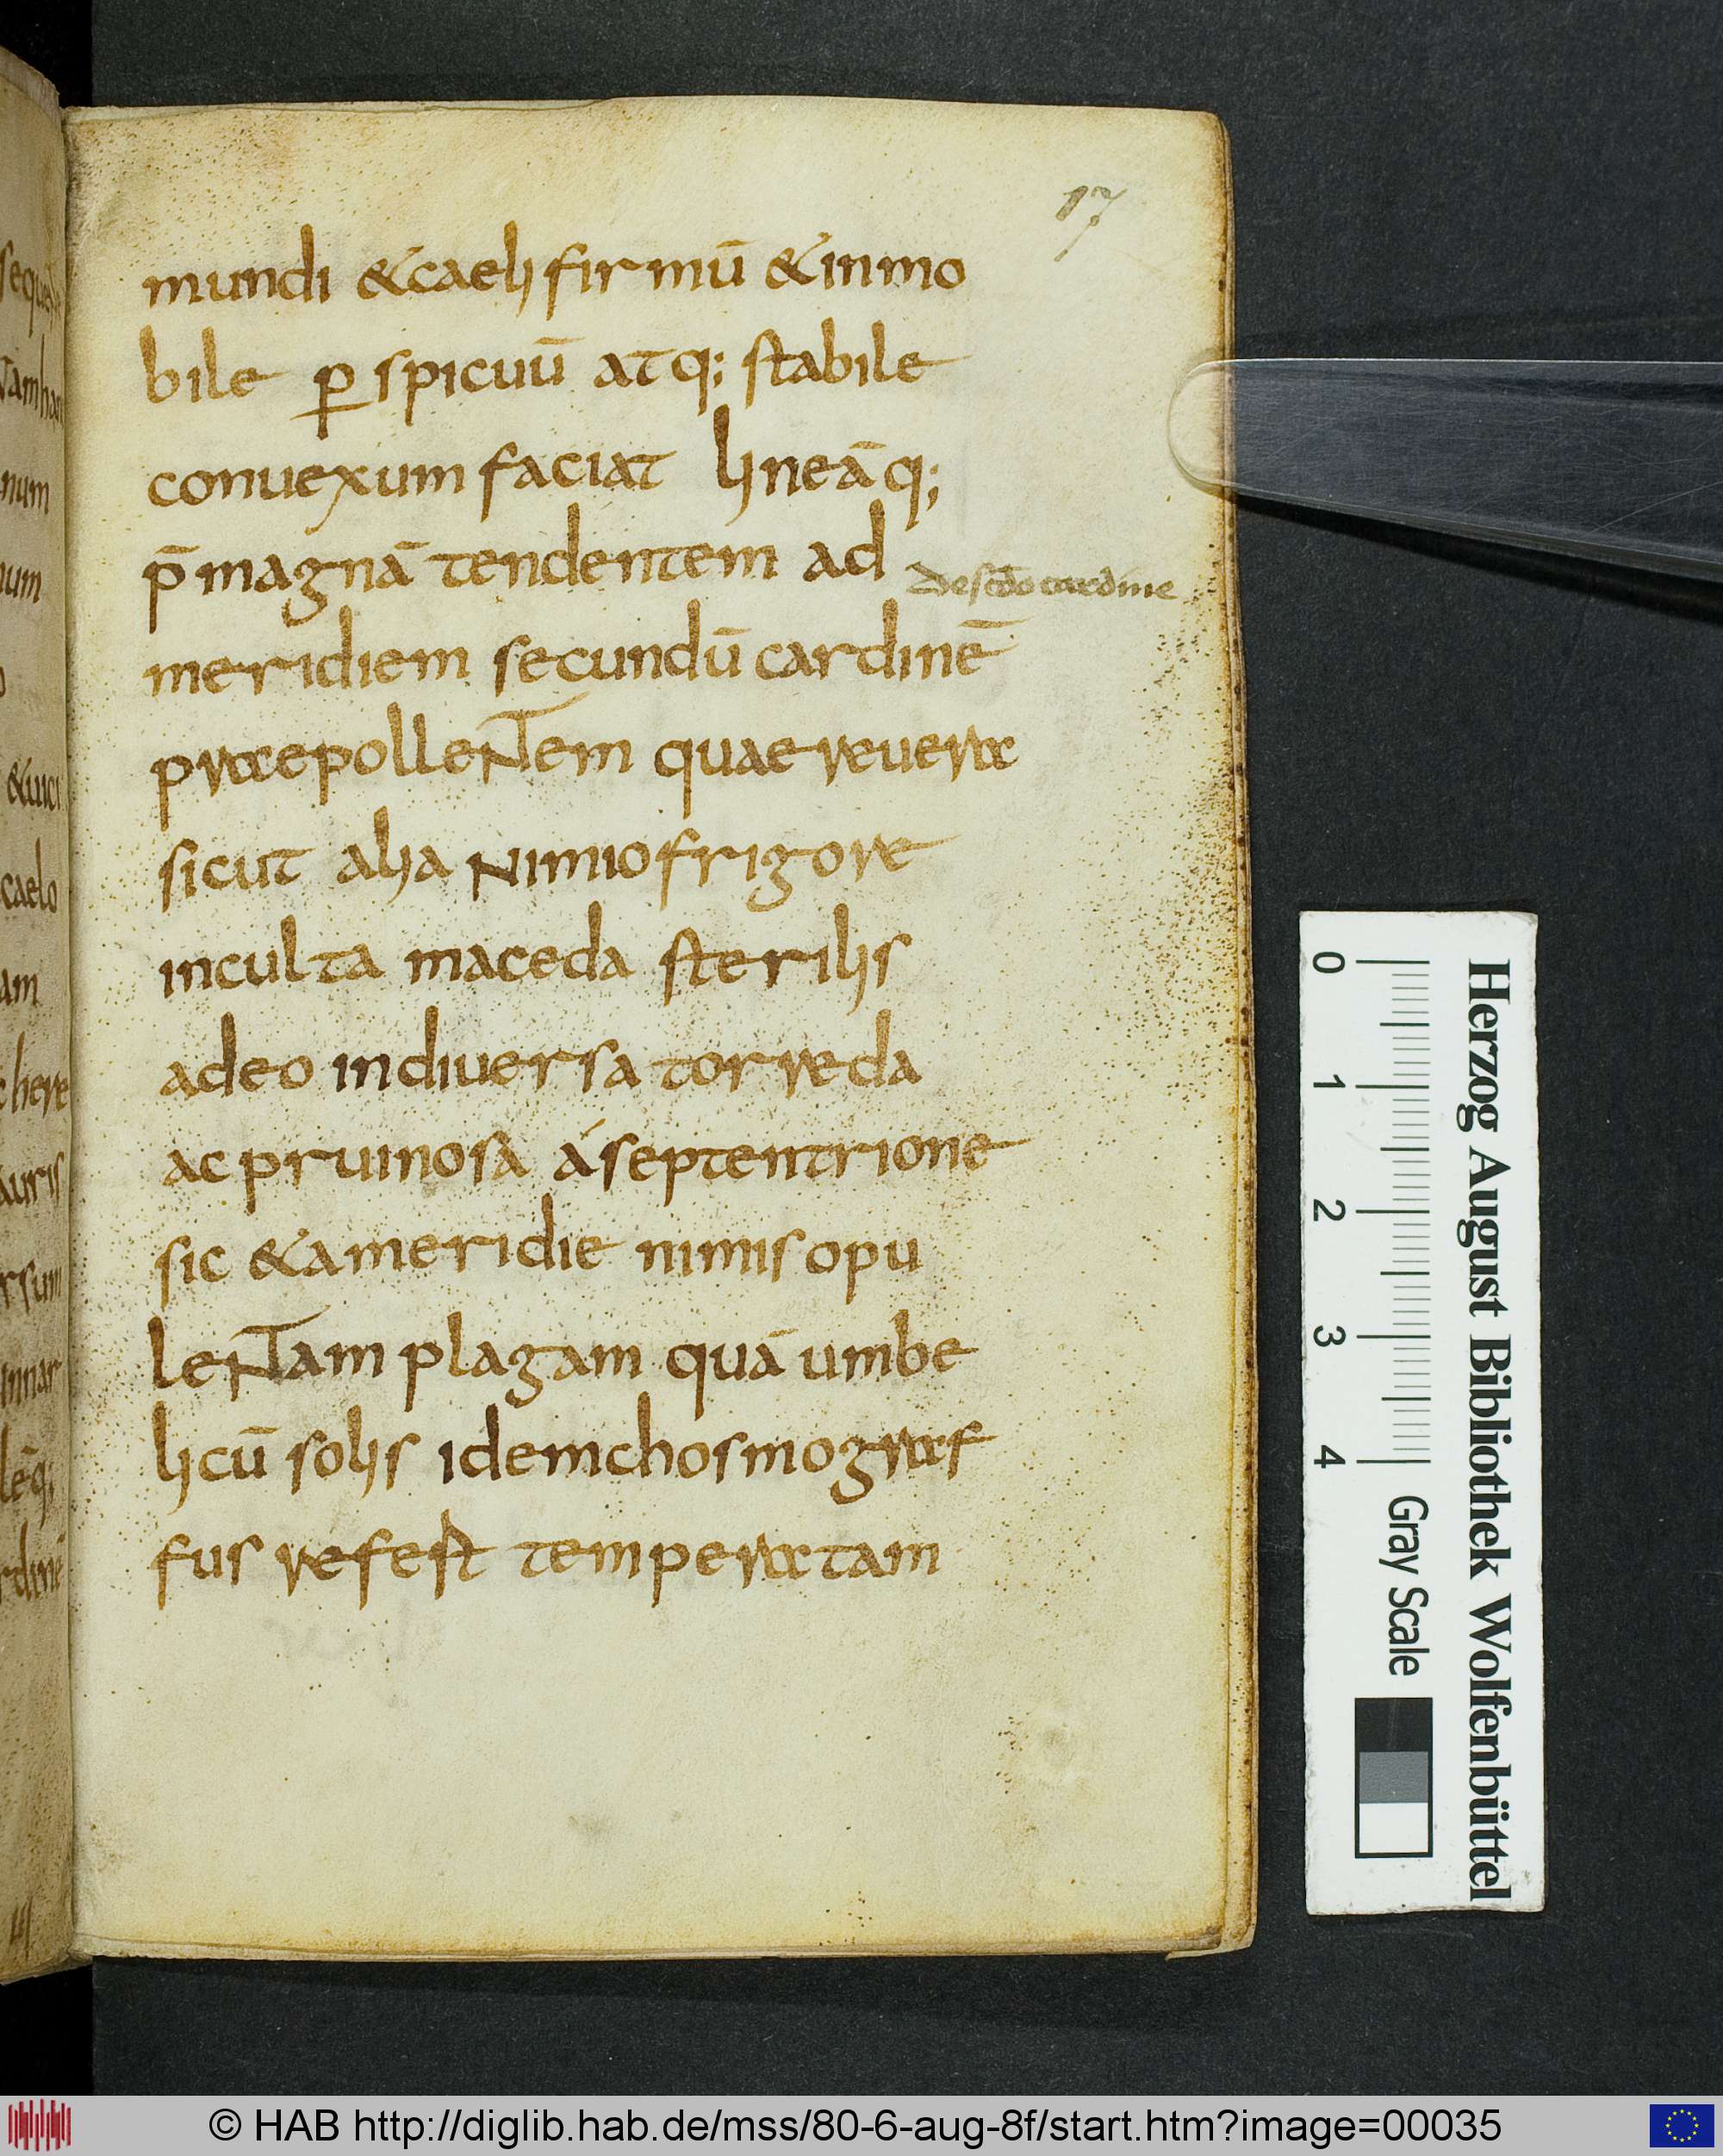 17
mundi &caeli firmū &inmo
bile ꝑspicuū atq; stabile
conuexum faciat lineāq;
p̄magnā tendentem ad
de scdo cardine
meridiem secundū cardinē
praepollentem quae reuera
sicut alia nimio frigore
inculta maceda sterilis
adeo indiuersa torreda
ac pruinosa á septentrione
sic &a meridie nimis opu
lentam plagam quā umbe
licū solis idem chosmograf
fus refest temperatam
seque
num
um
&uici
caelo
am
here
auris
rsum
leq;
rdinē
0
1
2
3
4
Gray Scale
Herzog August Bibliothek Wolfenbüttel
© HAB http://diglib.hab.de/mss/80-6-aug-8f/start.htm?image=00035